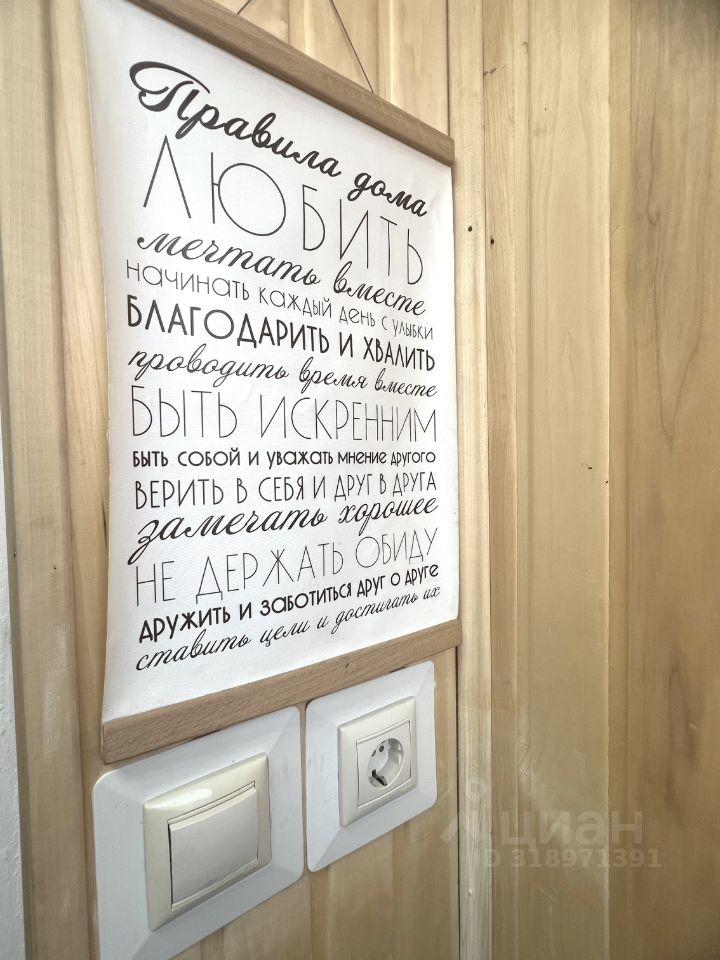 Правила дома
ЛЮБИТЬ
мечтать вместе
НАЧИНАТЬ КАЖДЫЙ ДЕНЬ С УЛЫБКИ
БЛАГОДАРИТЬ И ХВАЛИТЬ
проводить время вместе
БЫТЬ ИСКРЕННИМ
БЫТЬ СОБОЙ И УВАЖАТЬ МНЕНИЕ ДРУГОГО
ВЕРИТЬ В СЕБЯ И ДРУГ В ДРУГА
замечать хорошее
НЕ ДЕРЖАТЬ ОБИДУ
ДРУЖИТЬ И ЗАБОТИТЬСЯ ДРУГ О ДРУГЕ
ставить цели и достигать их
циан
ID 318971391